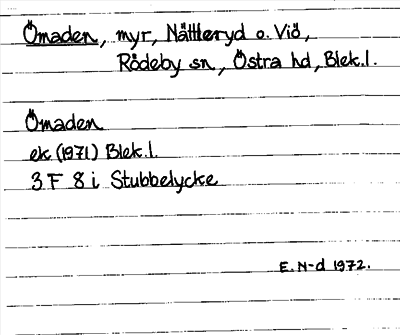 Ömaden, myr, Nättleryd o. Viö,
Rödeby sn, Östra hd, Blek.l.
Ömaden
ek (1971) Blek.l.
3 F 8 i Stubbelycke
E. N-d 1972.